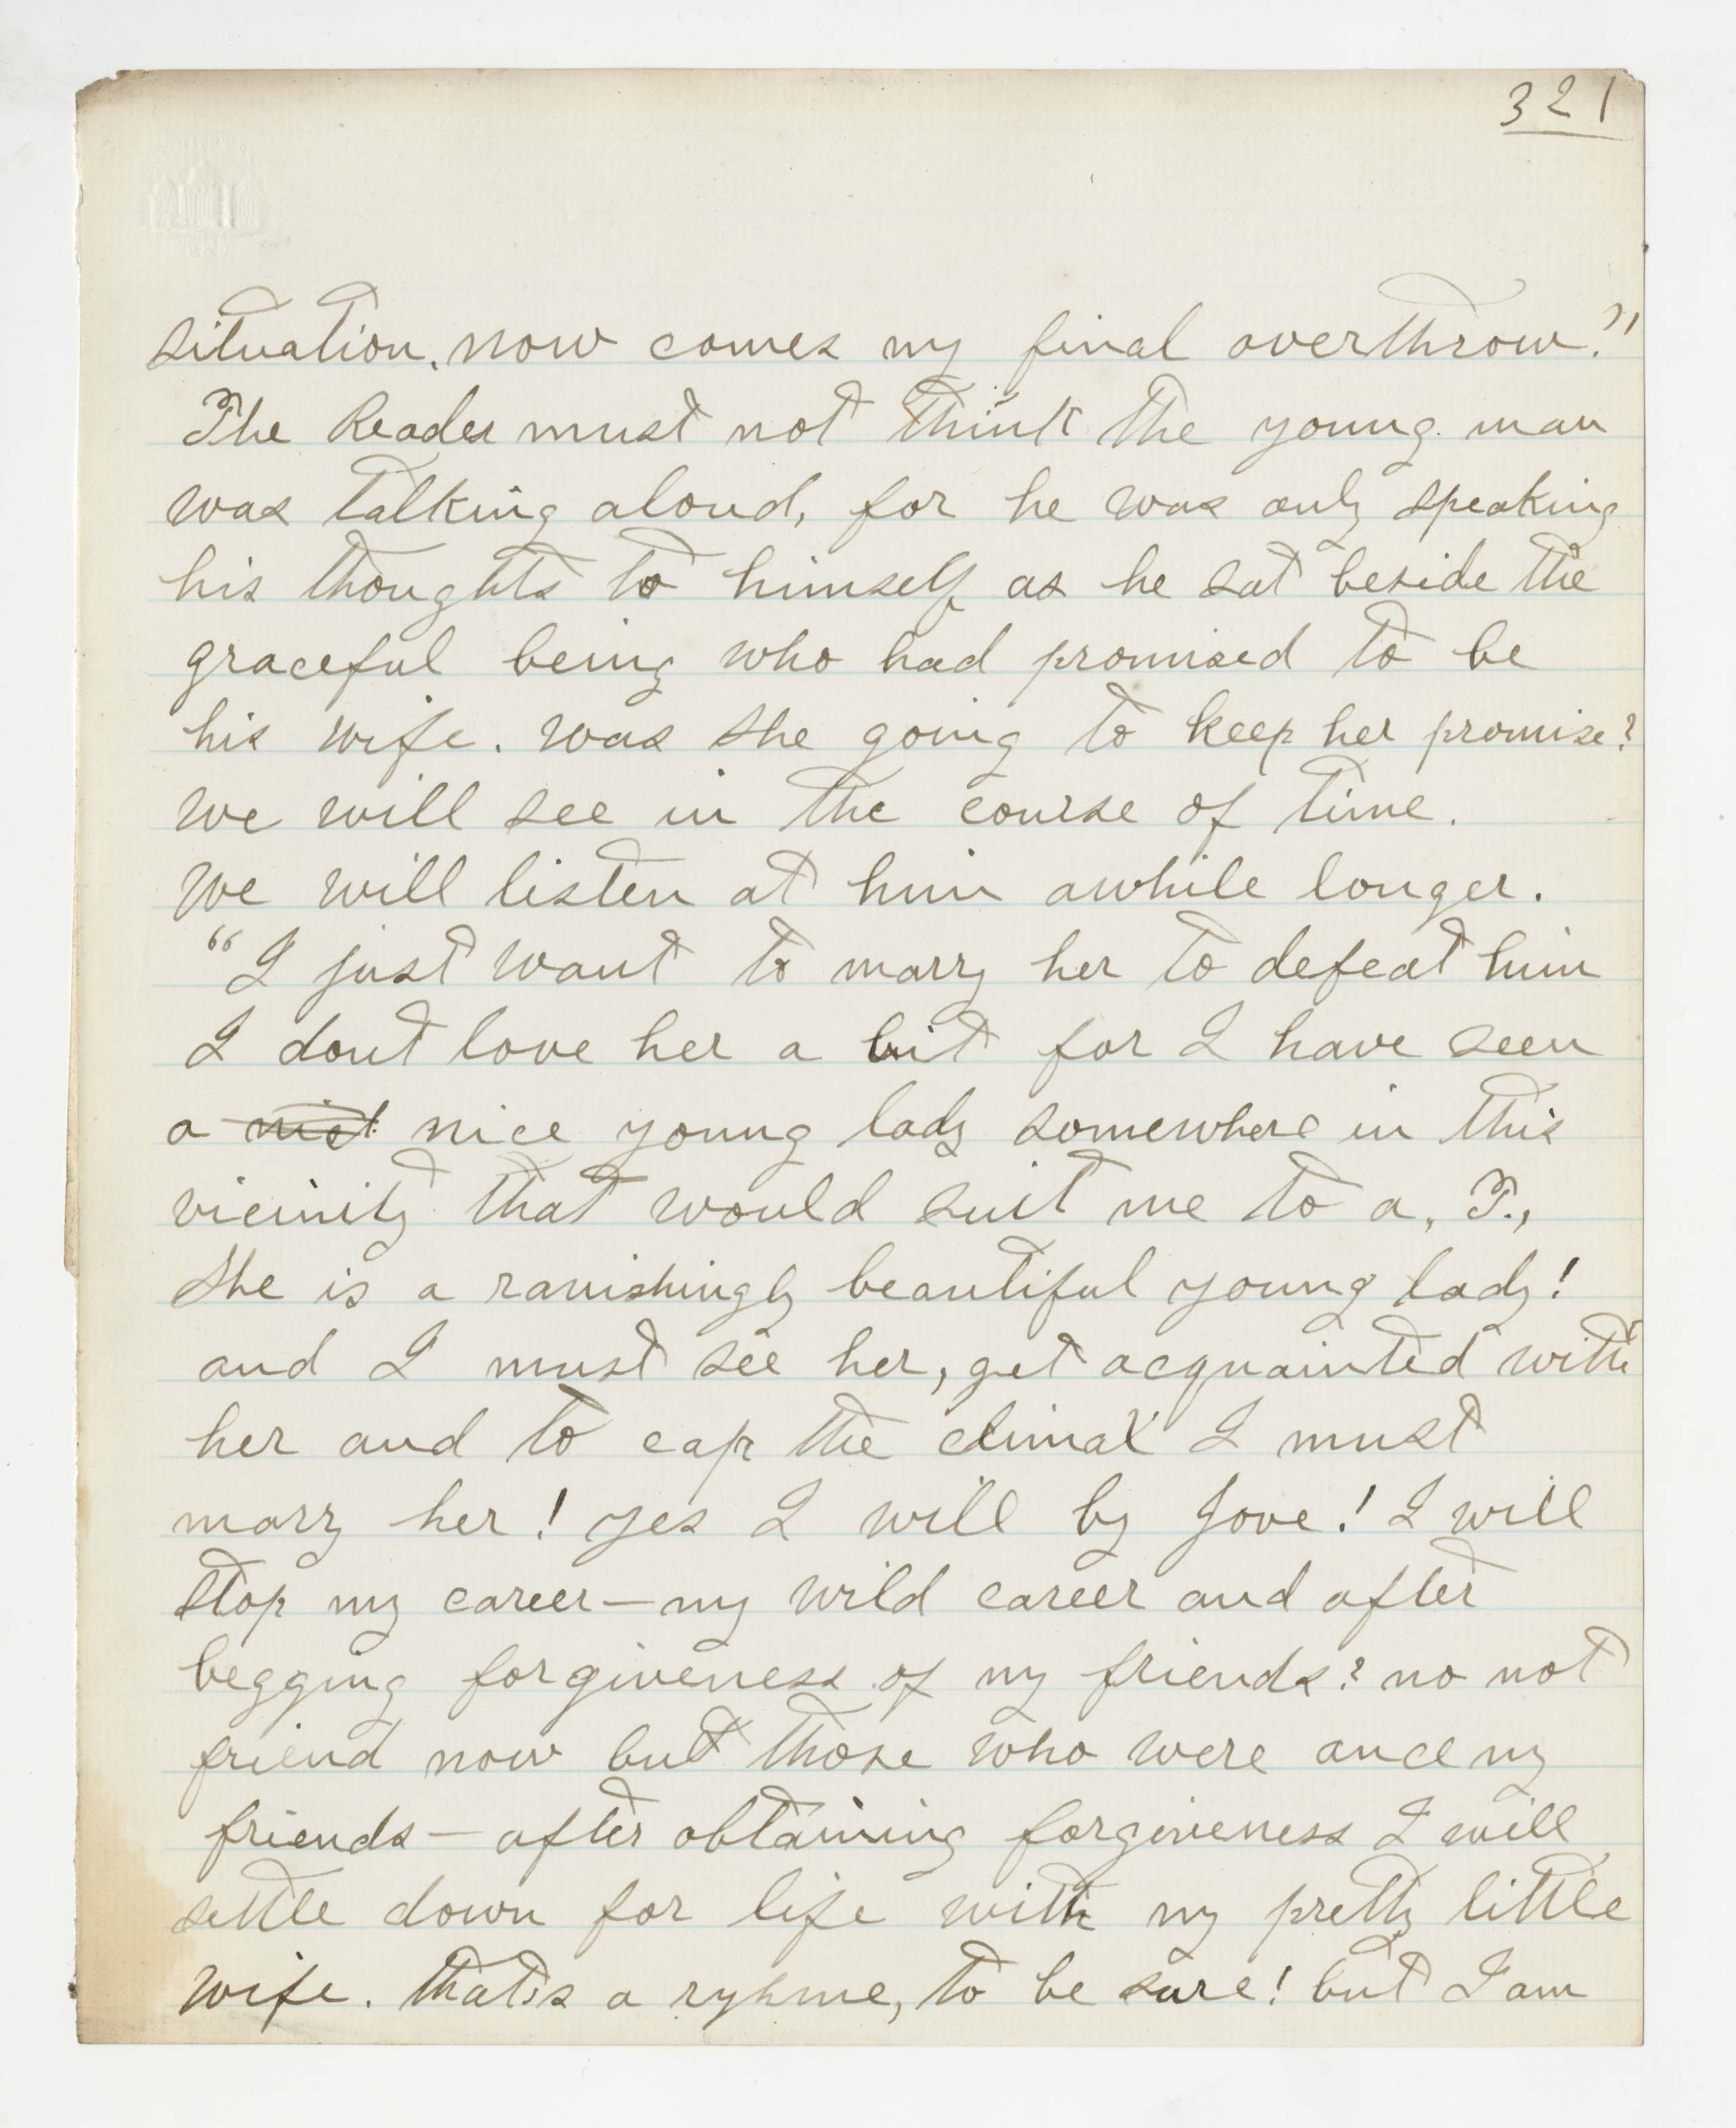 321
situation. now comes my final overthrow?"
The Reader must not think the young man
was talking aloud, for he was only speaking
his thoughts to himself as he sat beside the
graceful being who had promised to be
his wife. was she going to keep her promise?
we will see in the course of time.
We will listen at him awhile longer.
"I just want to marry her to defeat him
I dont love her a bit for I have seen
a nice young lady somewhere in this
vicinity that would suit me to a, T.,
She is a ravishingly beautiful young lady!
and I must see her, get acquainted with
her and to cap the climax I must
marry her! yes I will by Jove! I will
stop my career—my wild career and after
begging forgiveness of my friends? no not
friend now but those who were once my
friends — after obtaining forgiveness I will
settle down for life with my pretty little
wife. that's a ryhme, to be sure! but I am